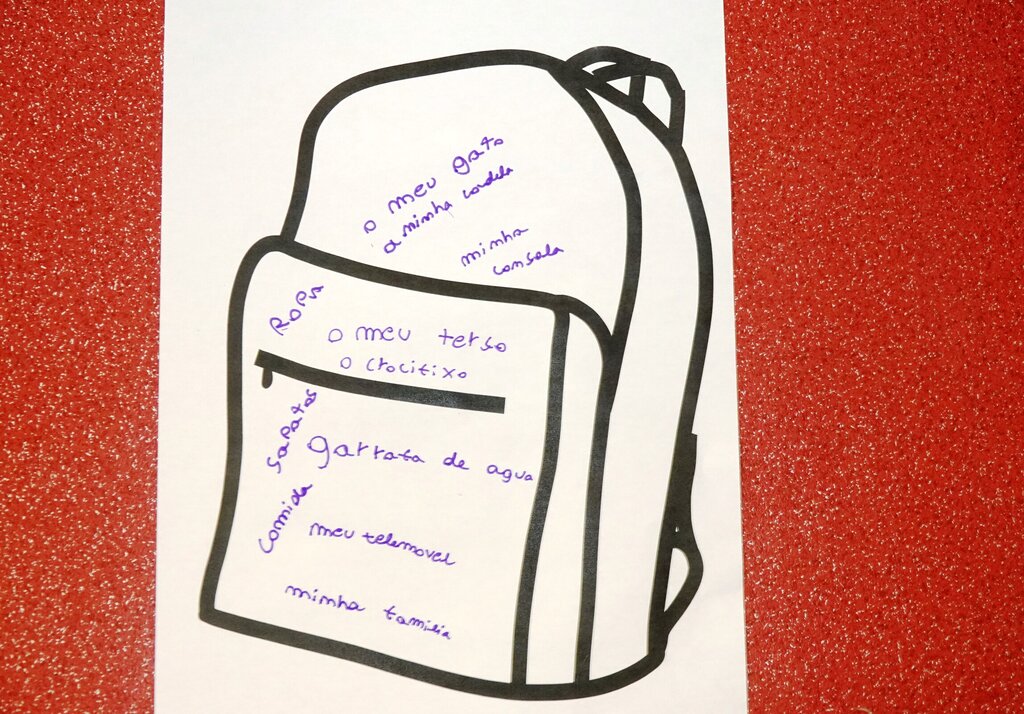 o meu gato
a minha cadela
minha
consola
ROPA
o meu terso
o crocifixo
SAPATOS
garrafa de agua
comida
meu telemovel
minha familia